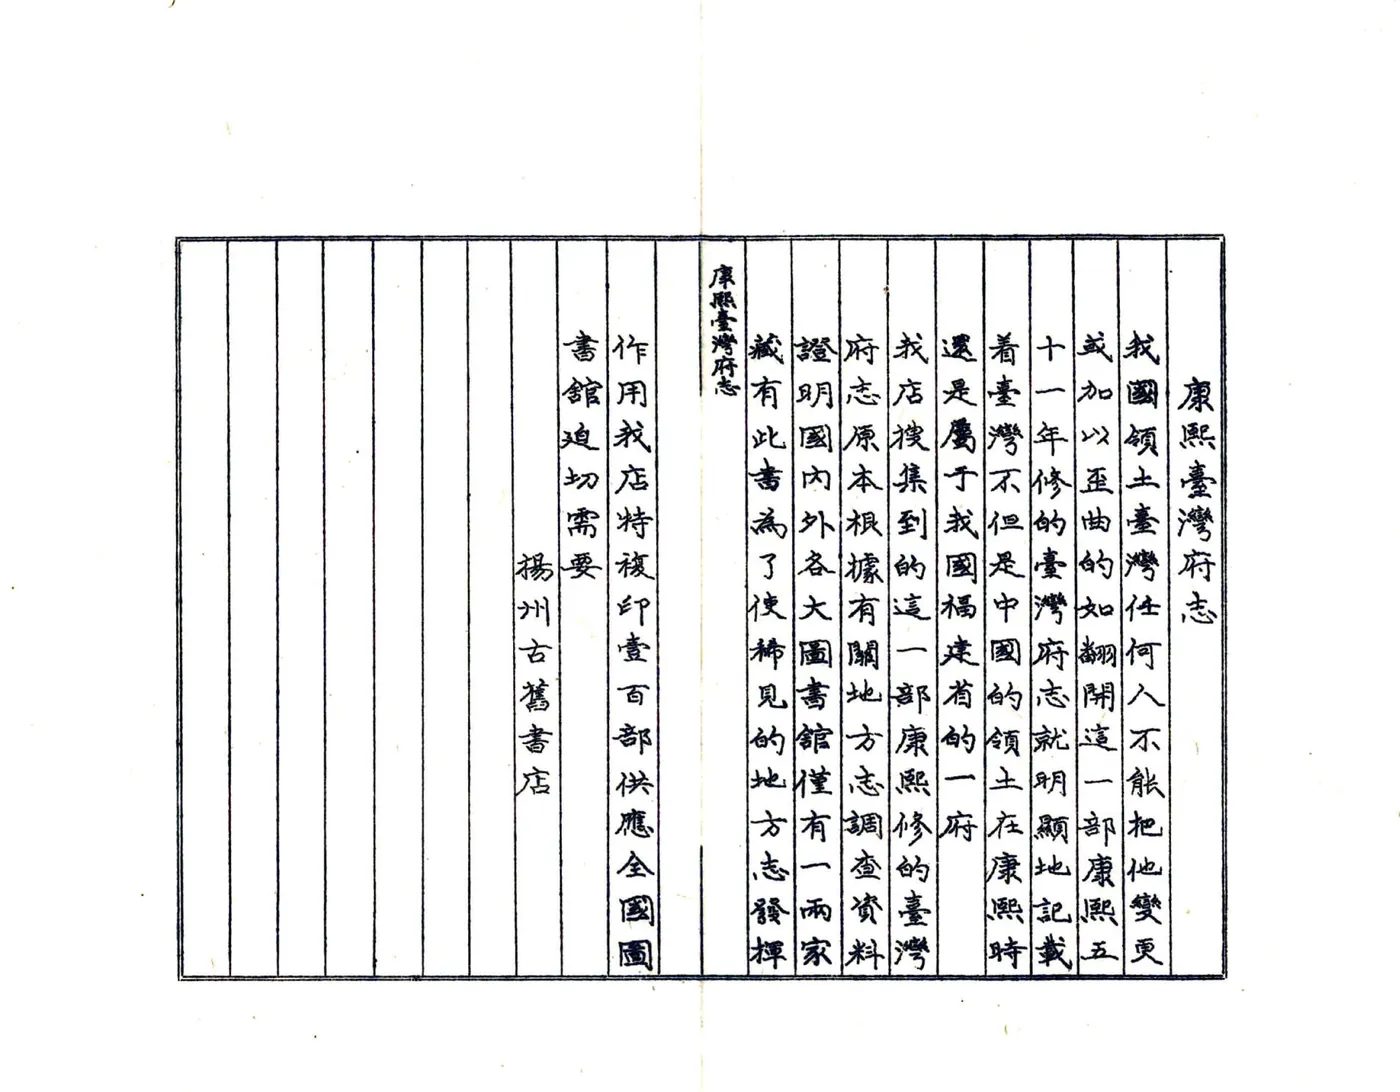 康熙臺灣府志
我國領土臺灣任何人不能把他變更
或加以歪曲的如翻開這一部康熙五
十一年修的臺灣府志就明顯地記載
着臺灣不但是中國的領土在康熙時
還是屬于我國福建省的一府
我店搜集到的這一部康熙修的臺灣
府志原本根據有關地方志調查資料
證明國內外各大圖書館僅有一兩家
藏有此書為了使稀見的地方志發揮
康熙臺灣府志
作用我店特複印壹百部供應全國圖
書館迫切需要
揚州古舊書店